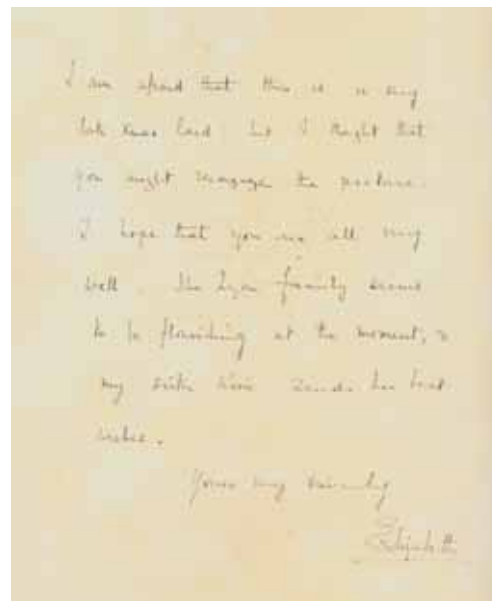 I am afraid that this is a very
late Xmas Card but I thought that
you might recognize the picture.
I hope that you are all very
well. The Lyon family seems
to be flourishing at the moment, &
my sister sends her best
wishes.
Yours very sincerely
Elizabeth